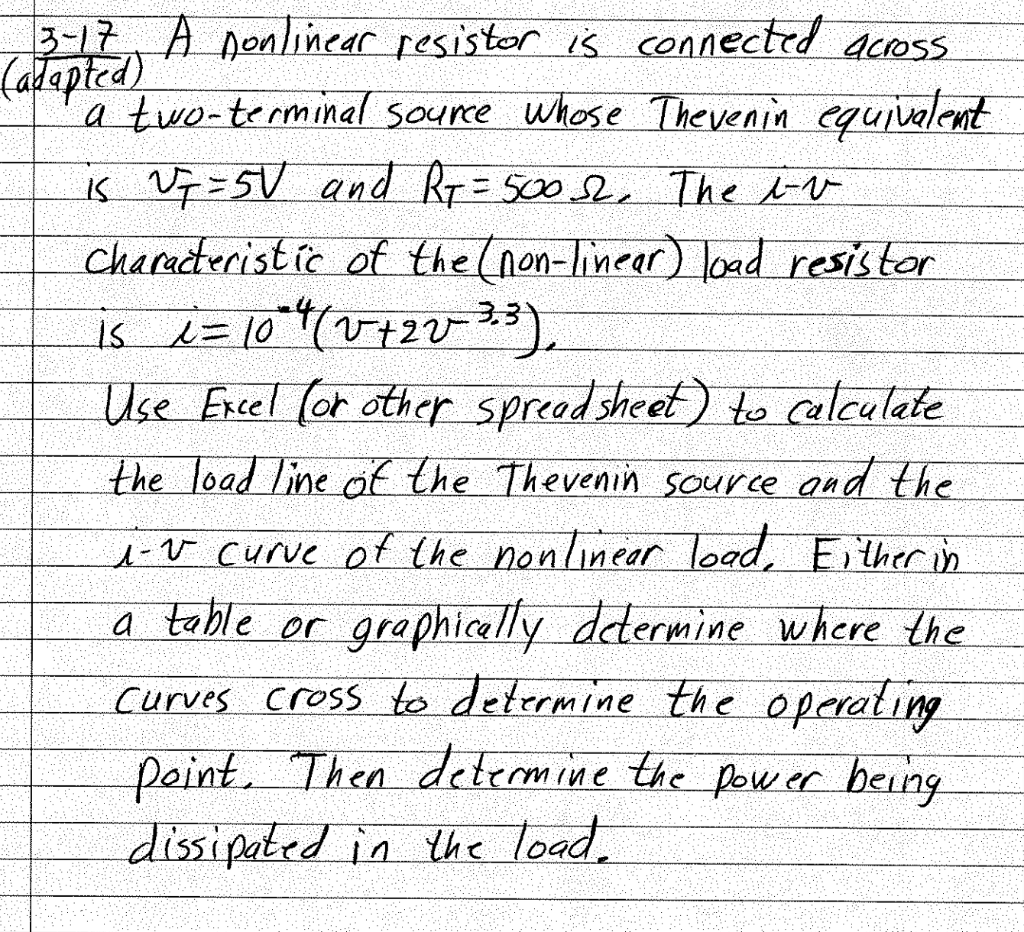 3-17, A nonlinear resistor is connected across
(adapted)
a two-terminal source whose Thevenin equivalent
is v_T=5V and R_T=500Ω. The i-v
characteristic of the (non-linear) load resistor
is i=10^-4(v+2v^3.3).
Use Excel (or other spreadsheet) to calculate
the load line of the Thevenin source and the
i-v curve of the nonlinear load. Either in
a table or graphically determine where the
curves cross to determine the operating
point. Then determine the power being
dissipated in the load.